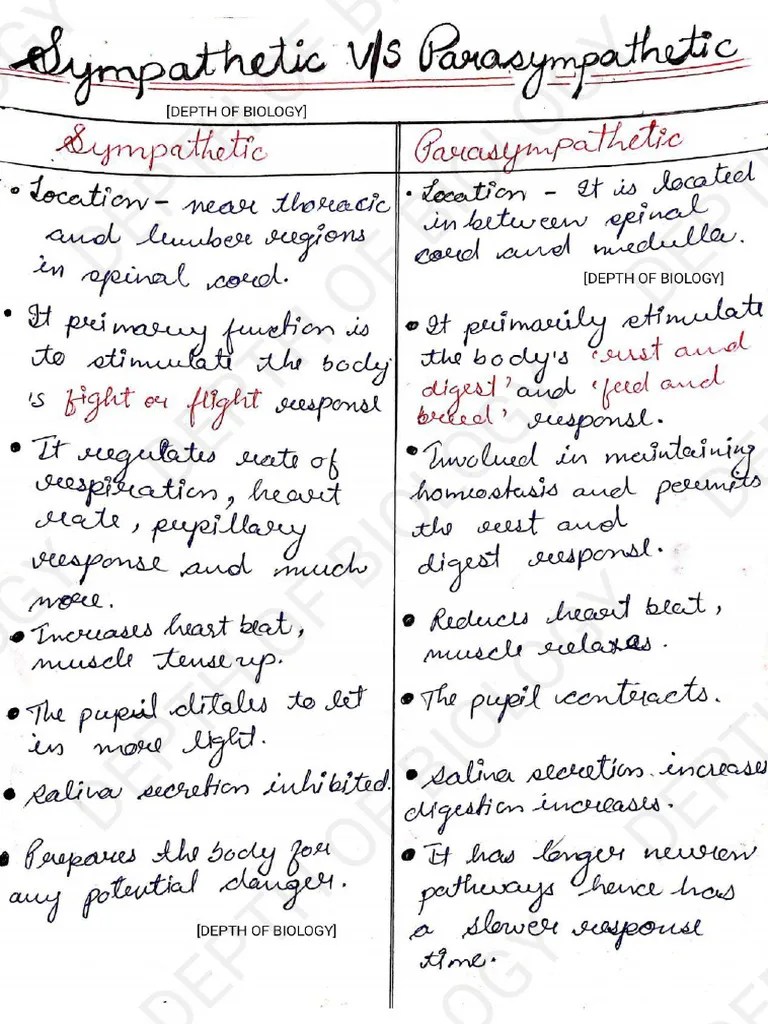 Sympathetic V/S Parasympathetic
[DEPTH OF BIOLOGY]
Sympathetic
• Location - near thoracic
and lumber regions
in spinal cord.
• It primary function is
to stimulate the body
's fight or flight response
• It regulates rate of
respiration, heart
rate, pupillary
response and much
more.
• Increases heart beat,
muscle tense up.
• The pupil ditales to let
in more light.
• saliva secretion inhibited.
• Prepares the body for
any potential danger.
[DEPTH OF BIOLOGY]
Parasympathetic
• Location - It is located
in between spinal
cord and medulla.
[DEPTH OF BIOLOGY]
• It primarily stimulate
the body's 'rest and
digest' and 'feed and
breed' response.
• Involved in maintaining
homeostasis and permits
the rest and
digest response.
• Reduces heart beat,
muscle relaxes.
• The pupil contracts.
• Saliva secretion increases
digestion increases.
• It has longer neuron
pathways hence has
a slower response
time.
DEPTH OF BIOLOGY